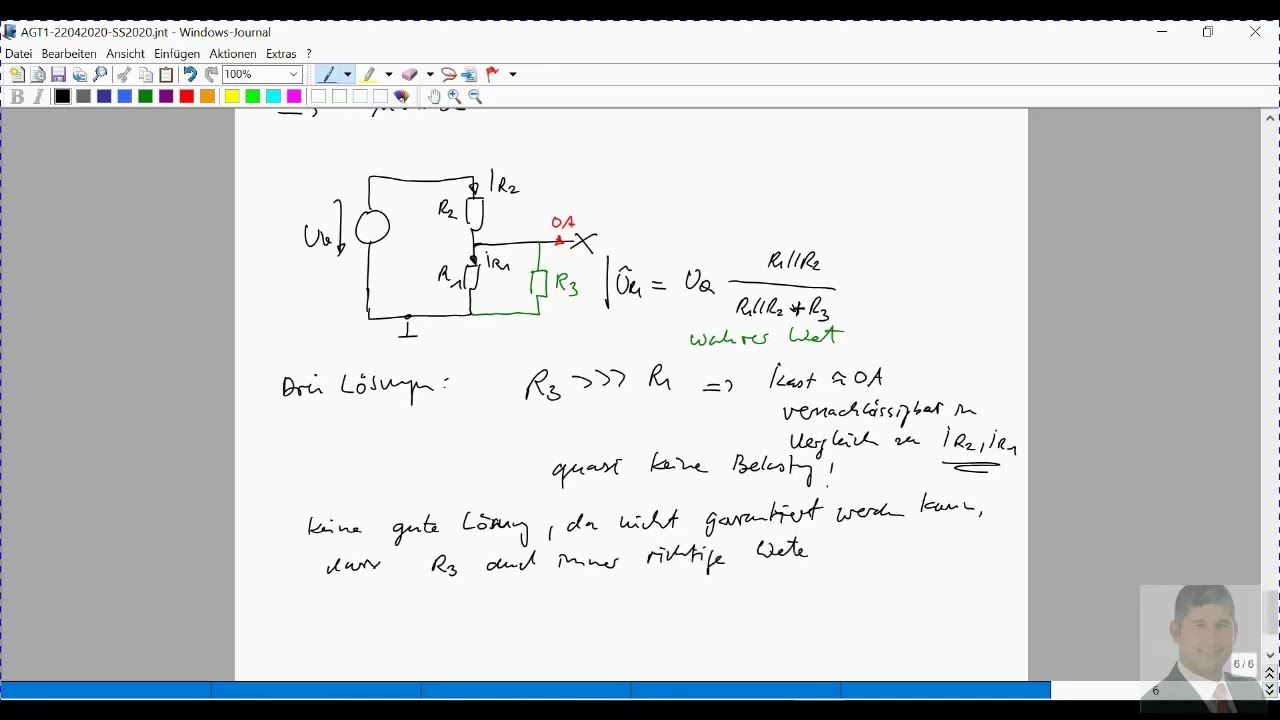 AGT1-22042020-SS2020.jnt - Windows-Journal
Datei Bearbeiten Ansicht Einfügen Aktionen Extras ?
100%
B I
IR2
R2
0A
UQ
iR1
R1
R3
ŨR1 = UQ R1//R2
R1//R2 + R3
wahres Wet
Drei Lösungen: R3 >>> R1 => ≈ 0A
vernachlässigbar in
Vergleich zu iR2, iR1
quasi keine Belastg!
Keine gute Lösung, da nicht garantiert werden kann,
dass R3 auch immer richtige Wete
6 / 6
6